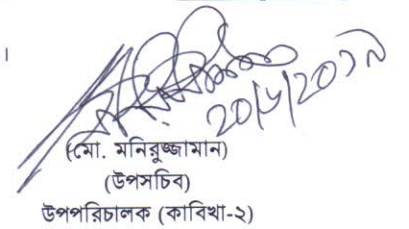 ২০/৬/২০১৯
(মো. মনিরুজ্জামান)
(উপসচিব)
উপপরিচালক (কাবিখা-২)